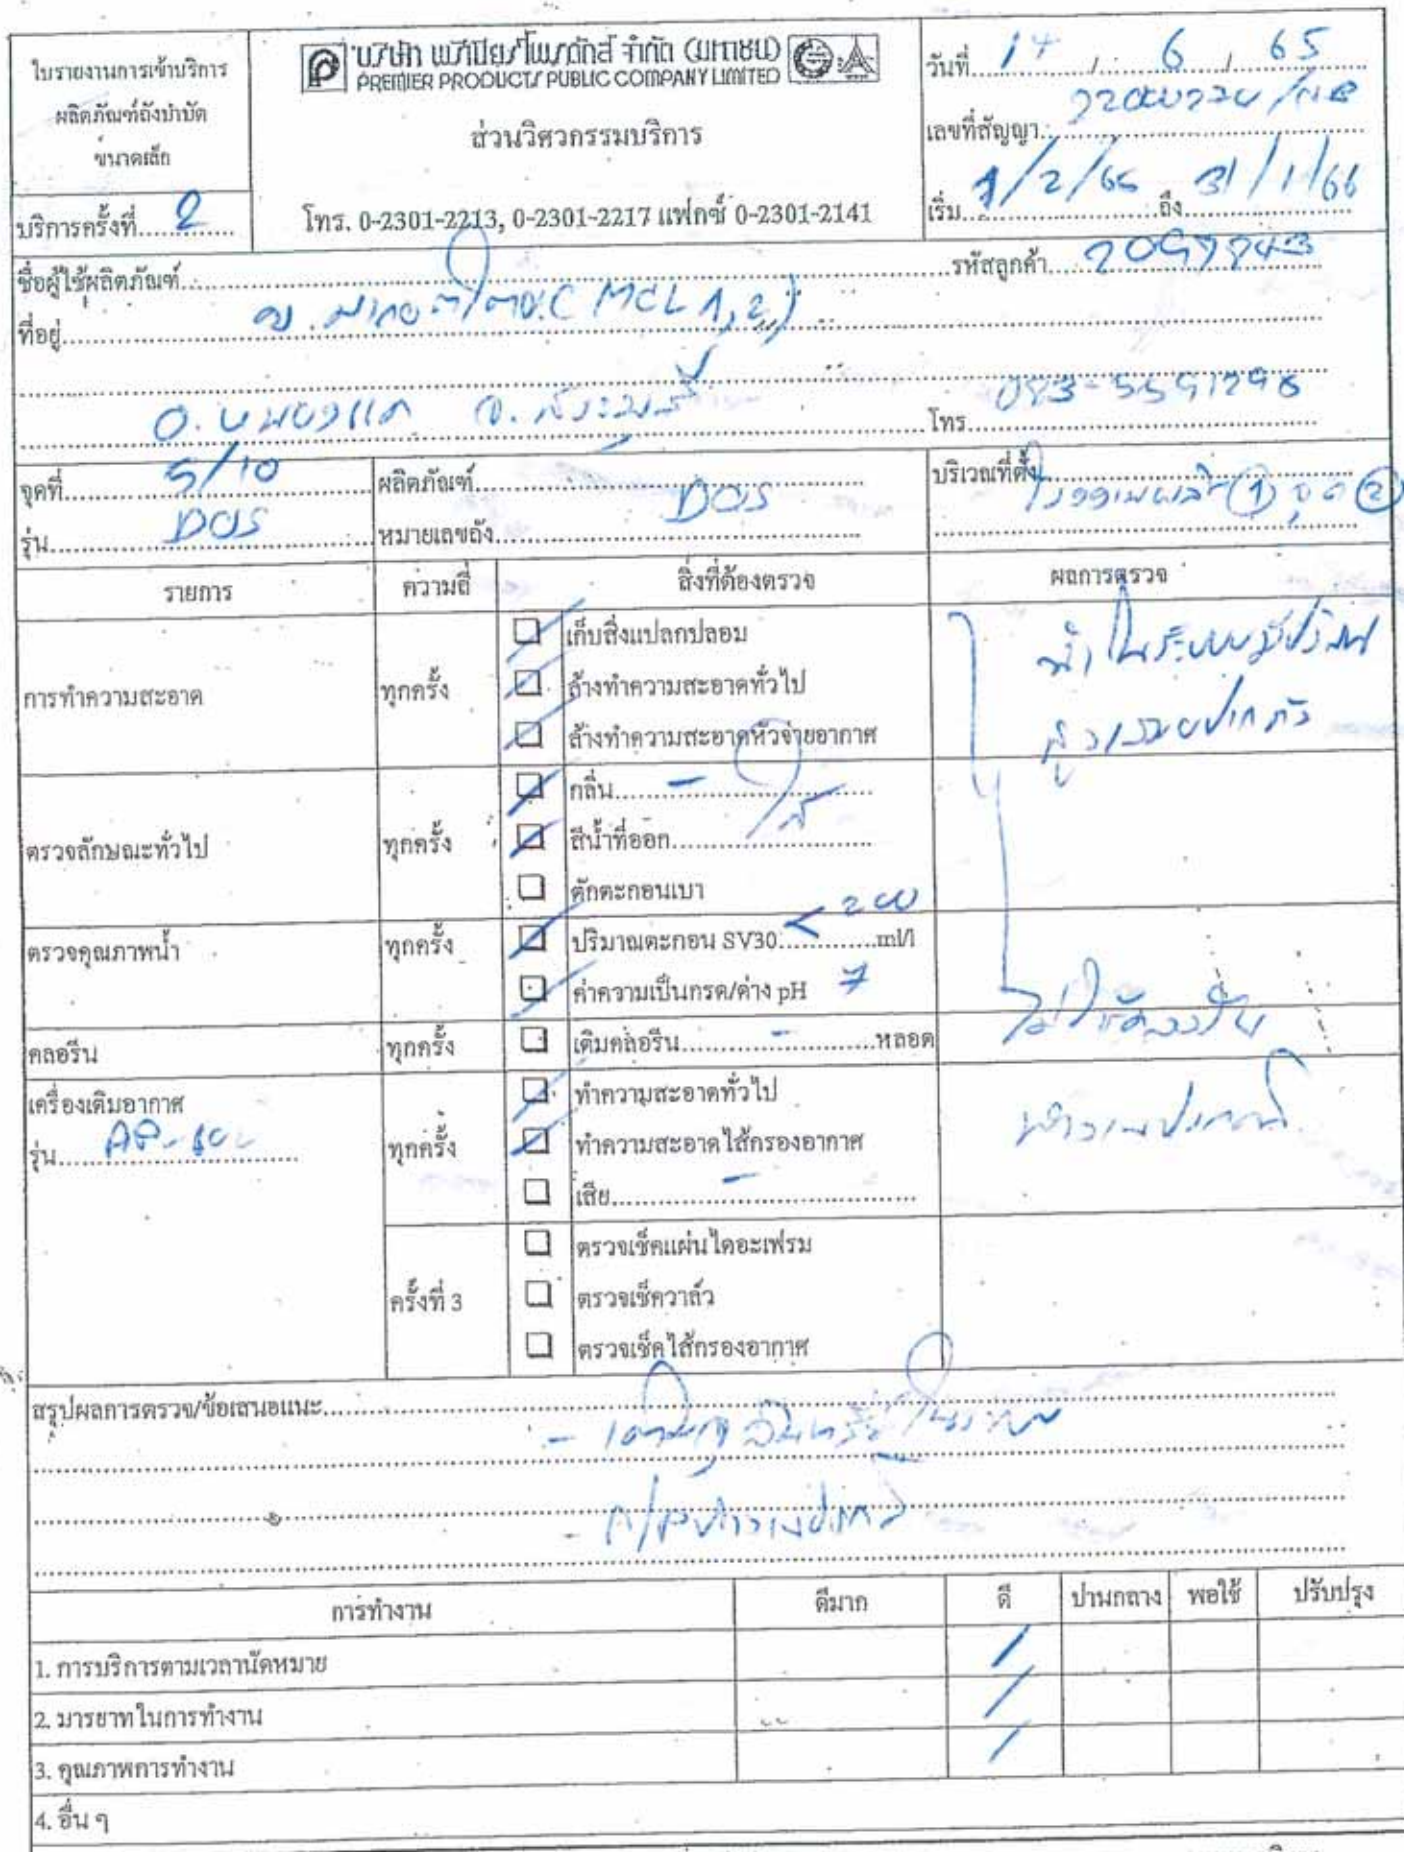 ใบรายงานการเข้าบริการ
ผลิตภัณฑ์ถังบำบัด
ขนาดเล็ก
บริการครั้งที่.............. 2
บริษัท พรีเมียร์ โพรดักส์ จำกัด (มหาชน)
PREMIER PRODUCTS PUBLIC COMPANY LIMITED
ส่วนวิศวกรรมบริการ
โทร. 0-2301-2213, 0-2301-2217 แฟกซ์ 0-2301-2141
วันที่ 14 / 6 / 65
เลขที่สัญญา
เริ่ม 1/2/65 ถึง 31/1/66
ชื่อผู้ใช้ผลิตภัณฑ์
รหัสลูกค้า
ที่อยู่ (MCL 1,2)
อ. หนองแค จ. สระบุรี โทร. 083-5591296
จุดที่ 5/10 ผลิตภัณฑ์ DOS บริเวณที่ตั้ง
รุ่น DOS หมายเลขถัง
รายการ ความถี่ สิ่งที่ต้องตรวจ ผลการตรวจ
การทำความสะอาด ทุกครั้ง
เก็บสิ่งแปลกปลอม
ล้างทำความสะอาดทั่วไป
ล้างทำความสะอาดหัวจ่ายอากาศ
น้ำในระบบมีปริมาณ
สูงกว่าปกติ
ตรวจลักษณะทั่วไป ทุกครั้ง
กลิ่น -
สีน้ำที่ออก ใส
ตักตะกอนเบา
ตรวจคุณภาพน้ำ ทุกครั้ง
ปริมาณตะกอน SV30 < 200 ml/l
ค่าความเป็นกรด/ด่าง pH 7
คลอรีน ทุกครั้ง เติมคลอรีน - หลอด
ไม่ใช้คลอรีน
เครื่องเติมอากาศ
รุ่น
ทุกครั้ง
ทำความสะอาดทั่วไป
ทำความสะอาดไส้กรองอากาศ
เสีย -
ทำงานปกติ
ครั้งที่ 3
ตรวจเช็คแผ่นไดอะเฟรม
ตรวจเช็ควาล์ว
ตรวจเช็คไส้กรองอากาศ
สรุปผลการตรวจ/ข้อเสนอแนะ
- เติมจุลินทรีย์ในระบบ
- A/P ทำงานปกติ
การทำงาน ดีมาก ดี ปานกลาง พอใช้ ปรับปรุง
1. การบริการตามเวลานัดหมาย /
2. มารยาทในการทำงาน /
3. คุณภาพการทำงาน /
4. อื่น ๆ